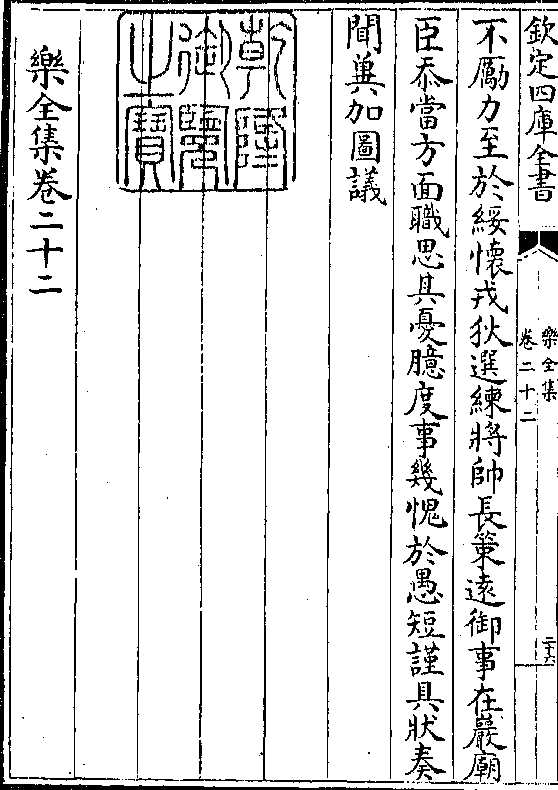 欽定四庫全書
樂全集
卷二十二
二十六
不厲力至於綏懷戎狄選練將帥長策遠御事在巖廟
臣忝當方面職思其憂臆度事幾愧於愚短謹具狀奏
聞兾加圖議
乾隆
御覽
之寶
樂全集卷二十二